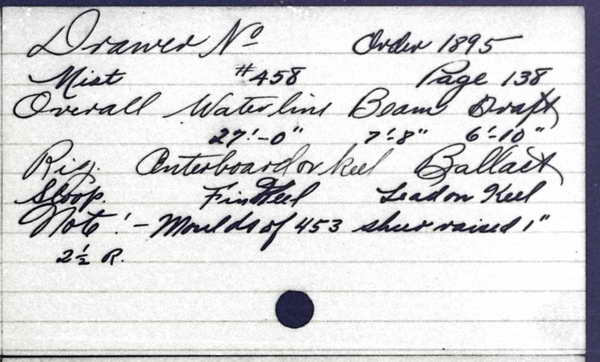 Drawer No Order 1895
Mist #458 Page 138
Overall Waterline Beam Draft
27'-0" 7'-8" 6'-10"
Rig. Centerboard or keel Ballast
Sloop. Fin Keel Lead on Keel
Note! - Moulds of 453 sheer raised 1"
2½ R.